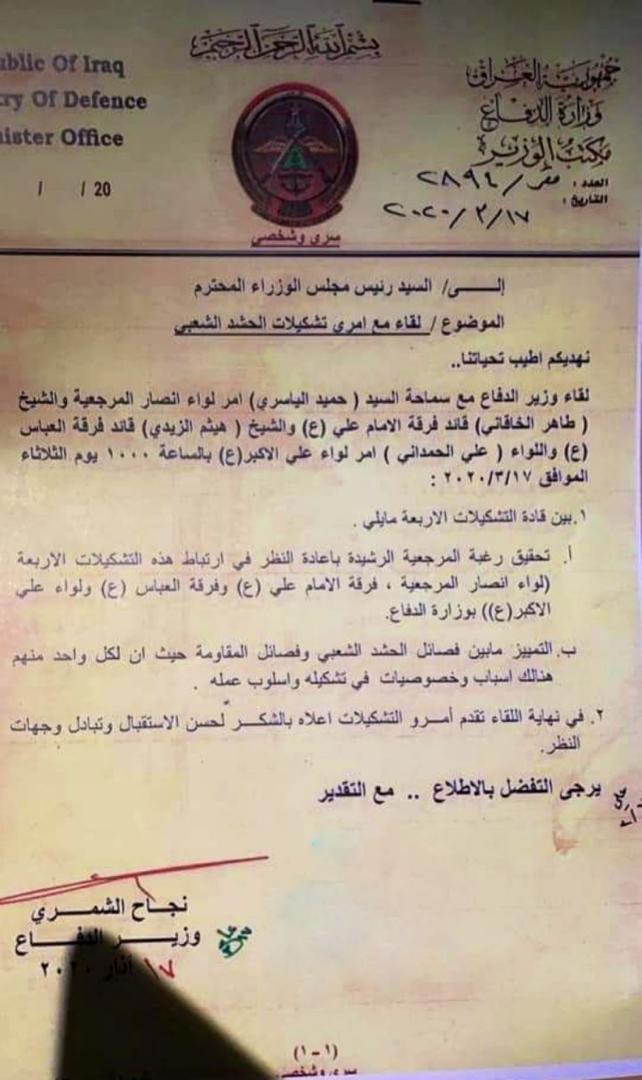 بسم الله الرحمن الرحيم
جمهورية العراق
وزارة الدفاع
مكتب الوزير
العدد : م ر / ٢٨٩٤
التاريخ : ٢٠٢٠/٣/١٧
ublic Of Iraq
ry Of Defence
ister Office
/ / 20
سري وشخصي
إلـــى/ السيد رئيس مجلس الوزراء المحترم
الموضوع / لقاء مع امري تشكيلات الحشد الشعبي
نهديكم اطيب تحياتنا..
لقاء وزير الدفاع مع سماحة السيد ( حميد الياسري) امر لواء انصار المرجعية والشيخ
( طاهر الخاقاني) قائد فرقة الامام علي (ع) والشيخ ( هيثم الزيدي) قائد فرقة العباس
(ع) واللواء ( علي الحمداني ) امر لواء علي الاكبر(ع) بالساعة ١٠٠٠ يوم الثلاثاء
الموافق ٢٠٢٠/٣/١٧ :
١.بين قادة التشكيلات الاربعة مايلي .
أ. تحقيق رغبة المرجعية الرشيدة باعادة النظر في ارتباط هذه التشكيلات الاربعة
(لواء انصار المرجعية ، فرقة الامام علي (ع) وفرقة العباس (ع) ولواء علي
الاكبر(ع)) بوزارة الدفاع.
ب. التمييز مابين فصائل الحشد الشعبي وفصائل المقاومة حيث ان لكل واحد منهم
هنالك اسباب وخصوصيات في تشكيله واسلوب عمله .
٢. في نهاية اللقاء تقدم أمرو التشكيلات اعلاه بالشكـــر لحسن الاستقبال وتبادل وجهات
النظر.
يرجى التفضل بالاطلاع .. مع التقدير
نجـــاح الشمـــــري
وزيـــــر الدفـــاع
١٧ آذار ٢٠٢٠
(١-١)
سري وشخصي